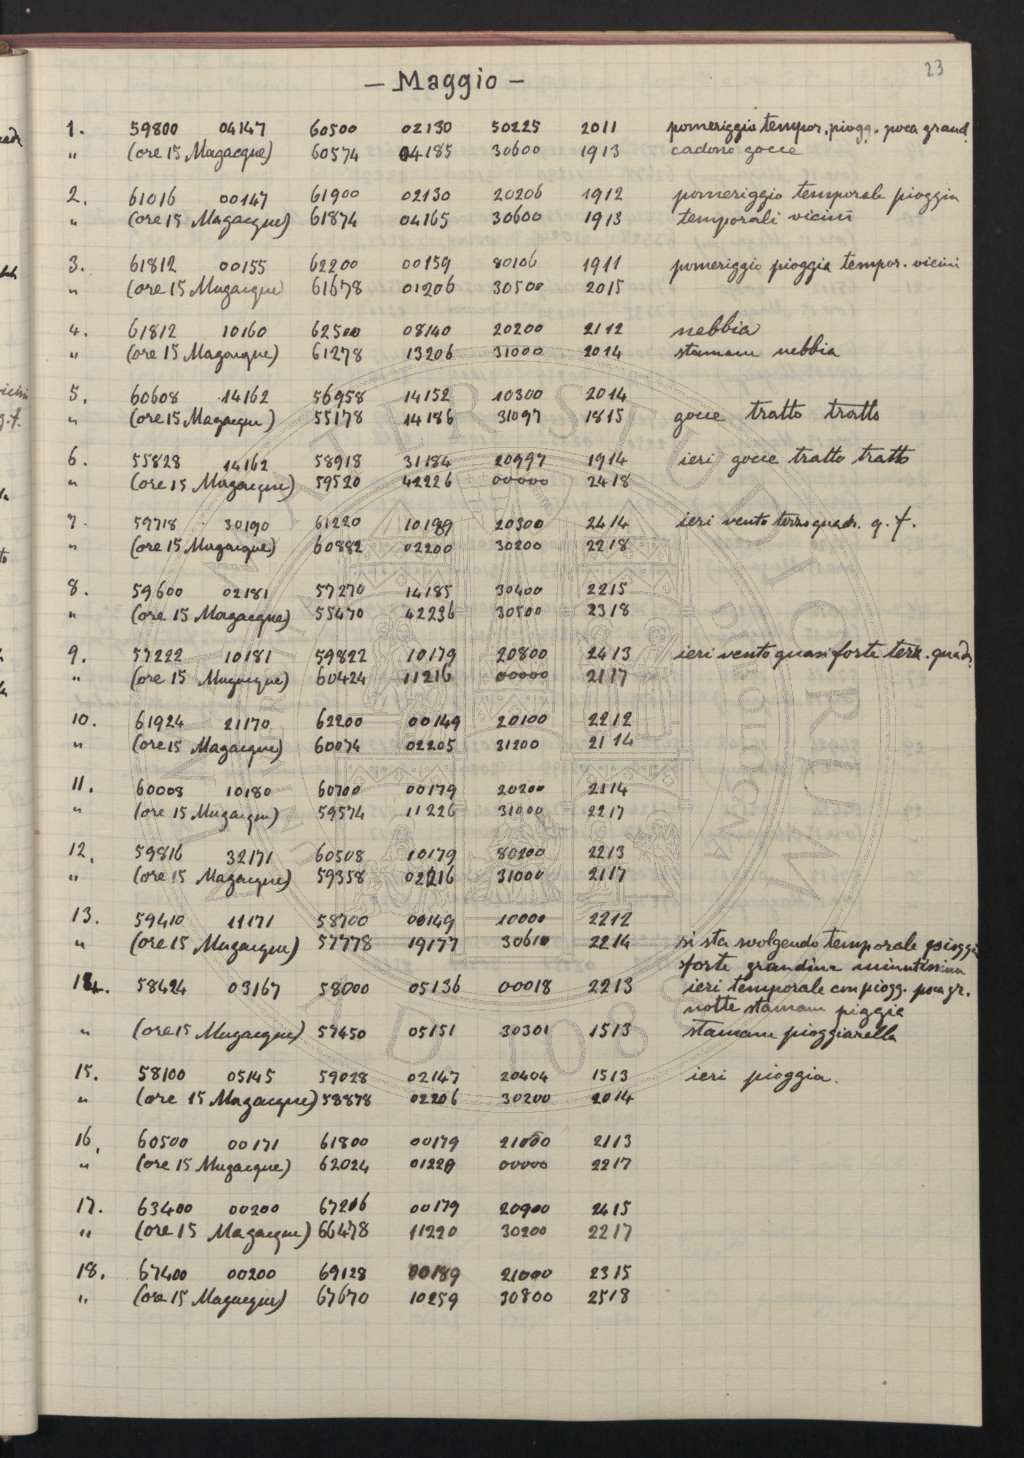 23
– Maggio –
1. 59800 04147 60500 02130 50225 2011 pomeriggio tempor. piogg. poca grand.
" (ore 15 Magacque) 60574 04185 30600 1913 cadono gocce
2. 61016 00147 61900 02130 20206 1912 pomeriggio temporale pioggia
" (ore 15 Magacque) 61874 04165 30600 1913 temporali vicini
3. 61812 00155 62200 00159 80106 1911 pomeriggio pioggia tempor. vicini
" (ore 15 Magacque) 61678 01206 30500 2015
4. 61812 10160 62500 08140 20200 2112 nebbia
" (ore 15 Magacque) 61278 13206 31000 2014 stamane nebbia
5. 60608 14162 56958 14152 10300 2014
" (ore 15 Magacque) 55178 14186 31097 1815 gocce tratto tratto
6. 55828 14162 58918 31184 20997 1914 ieri gocce tratto tratto
" (ore 15 Magacque) 59520 42226 00000 2418
7. 59718 30190 61220 10189 20300 2414 ieri vento terzo quadr. q. f.
" (ore 15 Magacque) 60882 02200 30200 2218
8. 59600 02181 57270 14185 30400 2215
" (ore 15 Magacque) 55470 42236 30500 2318
9. 57222 10181 59822 10179 20800 2413 ieri vento quasi forte terz. quadr.
" (ore 15 Magacque) 60424 11216 00000 2117
10. 61924 21170 62200 00149 20100 2212
" (ore 15 Magacque) 60074 02205 31200 2114
11. 60008 10180 60700 00179 20200 2114
" (ore 15 Magacque) 59574 11226 31000 2217
12. 59816 32171 60508 10179 80200 2213
" (ore 15 Magacque) 59358 02216 31000 2117
13. 59410 11171 58700 00149 10000 2212
" (ore 15 Magacque) 57778 19177 30610 2214 si sta svolgendo temporale pioggia
forte grandine minutissima
14. 58424 03167 58000 05136 00018 2213 ieri temporale con piogg. poca gr.
notte stamane pioggia
" (ore 15 Magacque) 57450 05151 30301 1513 stamane pioggiarella
15. 58100 05145 59028 02147 20404 1513 ieri pioggia.
" (ore 15 Magacque) 58878 02206 30200 2014
16. 60500 00171 61800 00179 21000 2113
" (ore 15 Magacque) 62024 01220 00000 2217
17. 63400 00200 67206 00179 20900 2415
" (ore 15 Magacque) 66478 11220 30200 2217
18. 67400 00200 69128 00189 21000 2315
" (ore 15 Magacque) 67670 10259 30800 2518